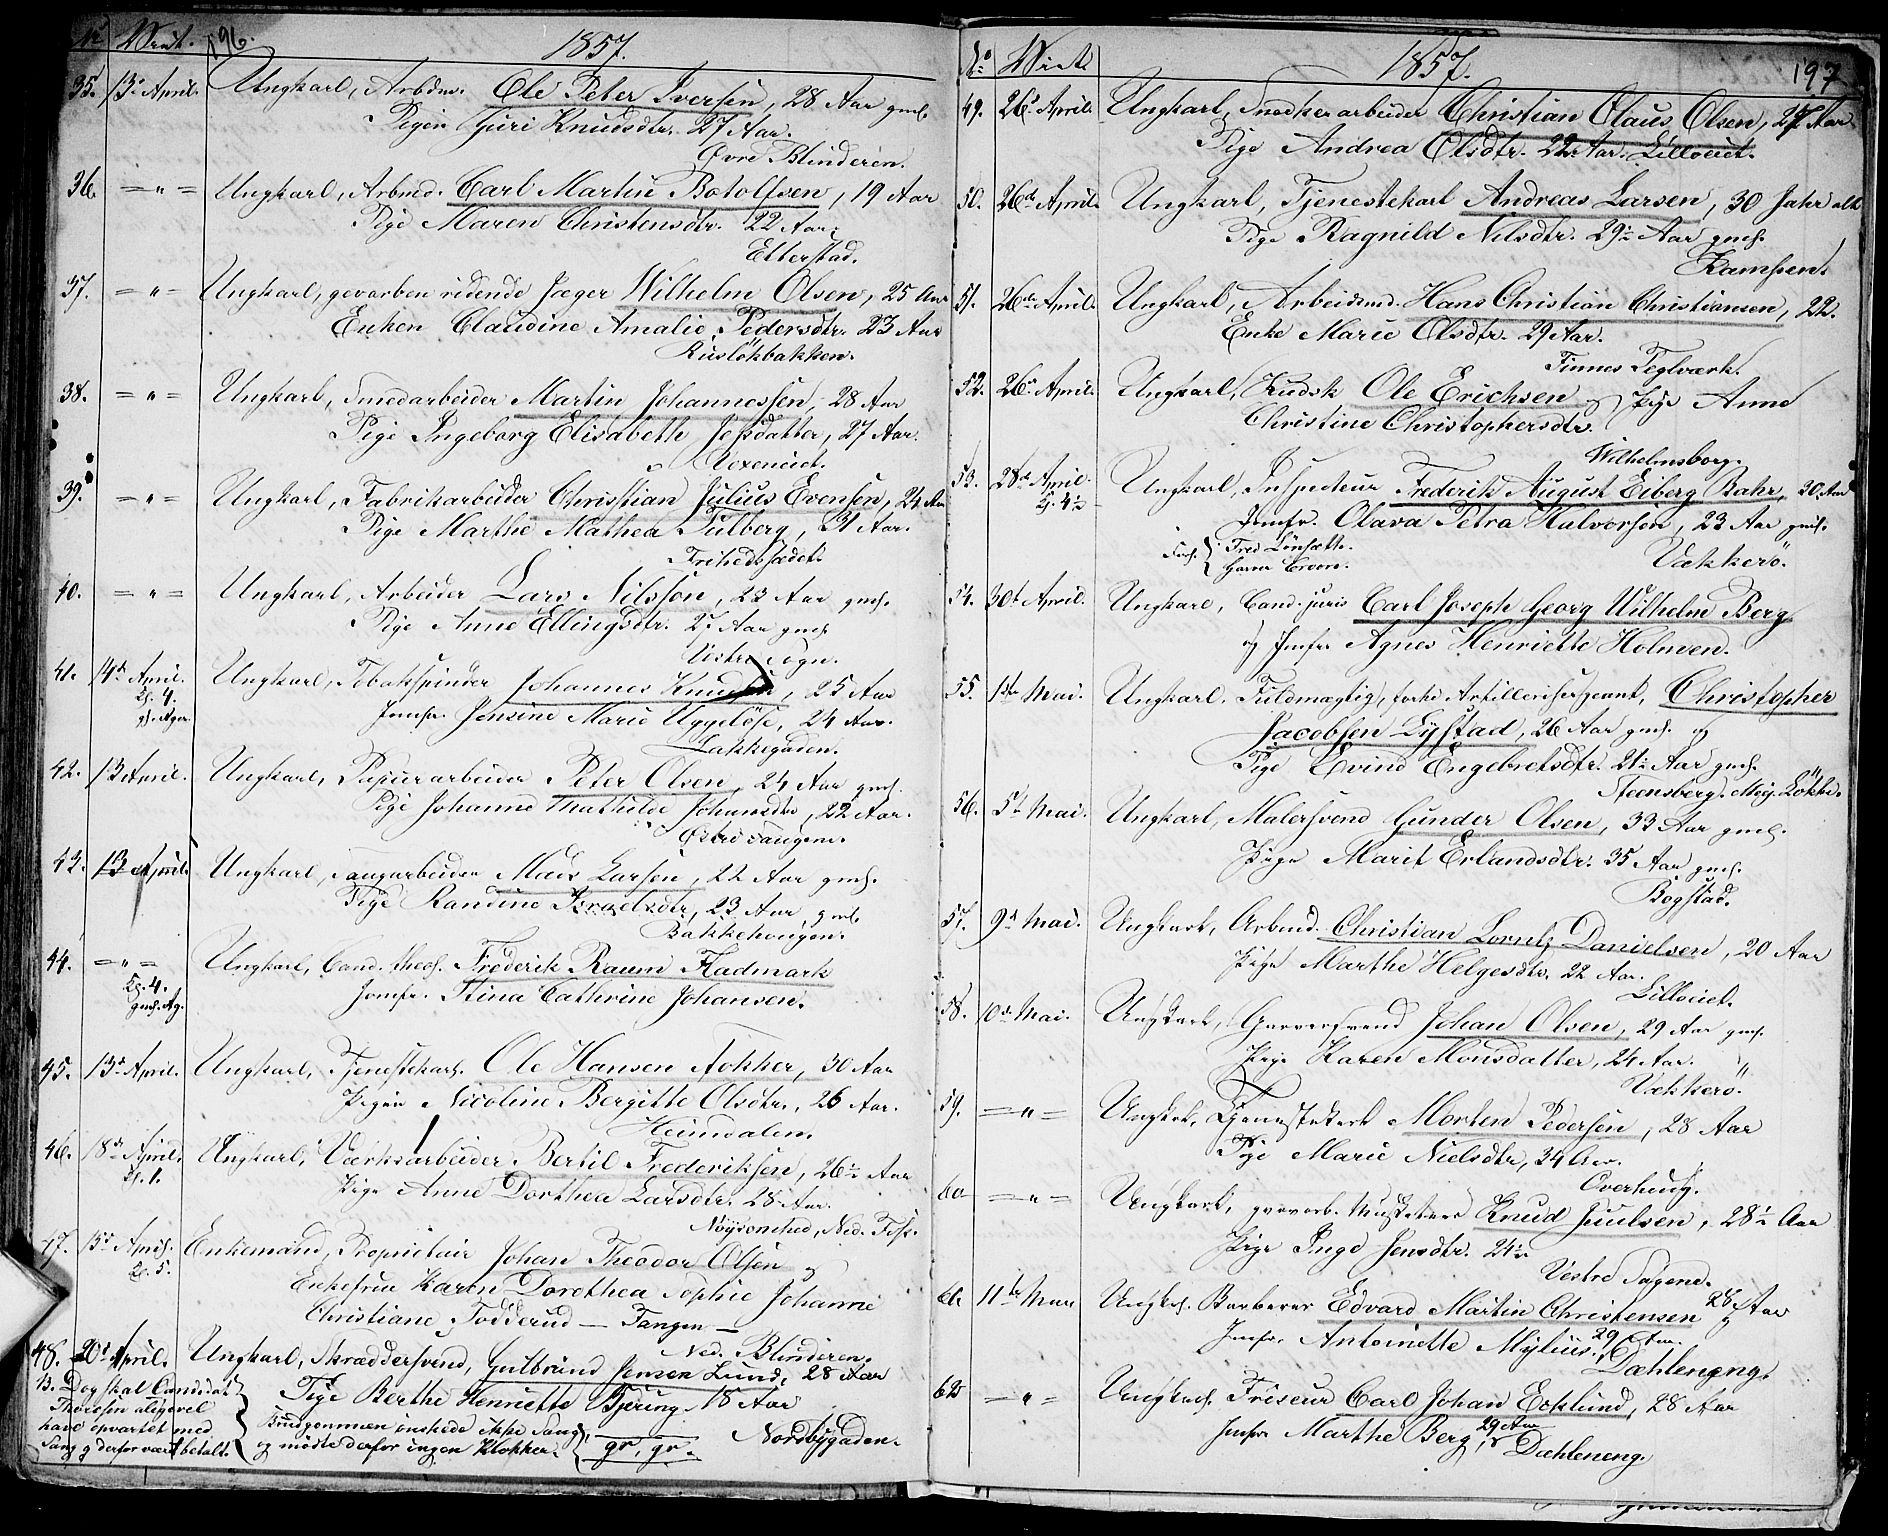 No Viet. 196.
1857.
35. 13de April. Ungkarl, Arbdm. Ole Peter Iversen, 28 Aar gml.
Pigen Guri Knudsdtr. 27 Aar.
Øvre Blinderen.
36. = " = Ungkarl, Arbmd. Carl Martin Botolfsen, 19 Aar
Pige Maren Christensdtr. 22 Aar.
Etterstad.
37. = " = Ungkarl, gevorben ridende Jæger Wilhelm Olsen, 25 Aar
Enken Claudine Amalie Pedersdtr. 23 Aar
Rusløkbakken.
38. = " = Ungkarl, Smedarbeider Martin Johannessen, 28 Aar
Pige Ingeborg Elisabeth Jepsdatter, 27 Aar.
Voxeneiet.
39. = " = Ungkarl, Fabrikarbeider Christian Julius Evensen, 24 Aar
Pige Marthe Mathea Tulberg, 31 Aar.
Frihedssædet.
40. = " = Ungkarl, Arbeider Lars Nilssen, 23 Aar gml.
Pige Anne Ellingsdtr. 27 Aar gml.
Vestre Sogn.
41. 14de April. Ungkarl, Tobakspinder Johannes Knudsen, 25 Aar
Kl. 4.
gl. Ager. Jomfr. Jensine Marie Uggeløse, 24 Aar.
Lakkegaden.
42. 13 April. Ungkarl, Papirarbeider Peter Olsen, 24 Aar gml.
Pige Johanne Mathilde Johansdtr, 22 Aar.
Østre Saugene.
43. 13 April. Ungkarl, Saugarbeider Mads Larsen, 22 Aar gml.
Pige Randine Israelsdtr, 23 Aar, gml.
Bakkehougen.
44. = " = Ungkarl, Cand. theol. Frederik Raum Fladmark
Kl. 4.
gml. Ag. Jomfr. Stina Cathrine Johansen.
45. 13de April. Ungkarl, Tjenestekarl Ole Hansen Fokker, 30 Aar
Pigen Nicoline Bergitte Olsdtr., 26 Aar.
Heimdalen.
46. 18de April. Ungkarl, Værksarbeider Bertil Frederiksen, 26½ Aar
Kl. 1. Pige Anne Dorthea Larsdtr. 28 Aar.
Nøysomhed, Ned. Foss.
47. 13de April. Enkemand, Proprietair Johan Theodor Olsen og
Kl. 5. Enkefrue Karen Dorothea Sophie Johanne
Christiane Fodderud — Tangen —
Ned. Blinderen.
48. 20de April. Ungkarl, Skræddersvend, Gulbrand Jensen Lund, 28 Aar
Pige Berthe Henriette Bjering. 18 Aar
Nordbygaden.
B. Dog skal Candidat
Thoresen aligevel
have opvartet med
Sang og derfor vært betalt.
Brudgommen ønskede ikke Sang,
og mødte derfor ingen Klokker.
gr, gr.
No Viet. 1857. 197
49. 26de April. Ungkarl, Snedkerarbeider Christian Claus Olsen, 27 Aar
Pige Andrea Olsdtr. 22 Aar. Lilloeiet.
50. 26de April. Ungkarl, Tjenestekarl Andreas Larsen, 30 Jahr alt
Pige Ragnild Nilsdtr. 29½ Aar gml.
Kampen.
51. 26de April. Ungkarl, Arbeidsmd. Hans Christian Christiansen, 22.
Enke Marie Olsdtr. 29 Aar.
Finnes Teglværk.
52. 26de April. Ungkarl, Kudsk Ole Erichsen og Pige Anne
Christine Christophersdtr.
Wilhelmsborg.
53. 28de April. Ungkarl, Inspecteur Frederik August Eiberg Bahr, 30 Aar
Kl. 4½ Jomfr. Olava Petra Halvorsen, 23 Aar gml.
Forl. { Fred Lønsætt.
Garver Croore.
Vækkerö.
54. 30te April. Ungkarl, Cand. juris Carl Joseph Georg Wilhelm Berg
og Jomfr Agnes Henriette Holmen.
55. 1ste Mai. Ungkarl. Fuldmægtig, forhe Artillerisergeant, Christopher
Jacobsen Lystad, 26 Aar gml. og
Pige Evind Engebretsdtr. 21½ Aar gml.
Steensberg. Meg. Løkke.
56. 5te Mai. Ungkarl, Malersvend Gunder Olsen, 33 Aar gml.
Pige Marit Erlandsdtr. 35 Aar gml.
Bogstad.
57. 9de Mai. Ungkarl, Arbmd. Christian Lorentz Danielsen, 20 Aar
Pige Marthe Helgesdtr. 22 Aar.
Lilloeiet.
58. 10de Mai. Ungkarl, Garversvend Johan Olsen, 29 Aar gml.
Pige Karen Monsdatter, 24 Aar.
Vækkerö.
59. = " = Ungkarl, Tjenestekarl Morten Pedersen, 28 Aar
Pige Marie Nielsdtr, 34 Aar.
Overheug.
60 = " = Ungkarl, gevorb. Musketeer Knud Juulsen, 28½ Aar
Pige Inge Jensdtr. 24½
Vestre Sagene.
61. 11te Mai Ungkarl. Barberer Edvard Martin Christensen 28 Aar
Jomfr. Antoinette Mylius. 29 Aar.
Dæhleneng.
62 = " = Ungkarl. Friseur Carl Johan Ecklund, 28 Aar
Jomfr Marthe Berg, 29 Aar
Dæhleneng.